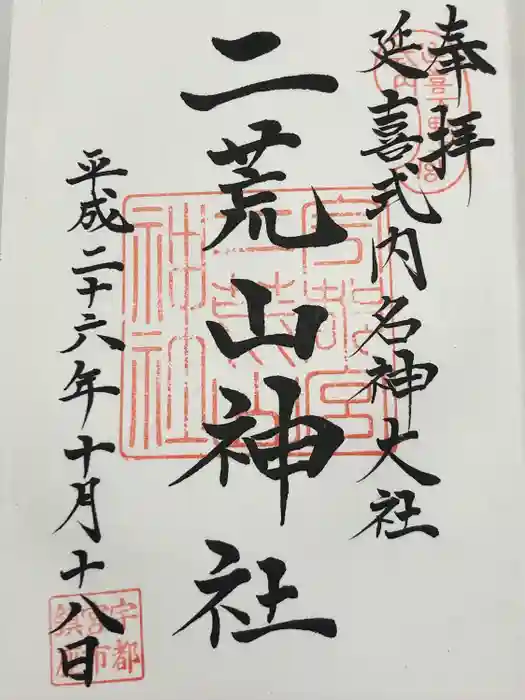 奉拝
延喜式内名神大社
二荒山神社
平成二十六年十月十八日
宇都宮
二荒山
神社
宇都
宮市
鎮座